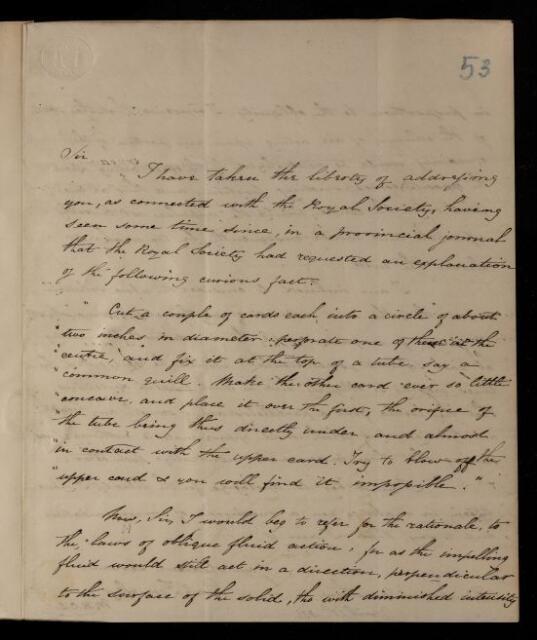 53
Sir
I have taken the liberty of addressing
you, as connected with the Royal Society, having
seen some time since, in a provincial journal
that the Royal Society had requested an explanation
of the following curious fact.
" Cut a couple of cards each into a circle of about
" two inches in diameter perforate one of these at the
" centre, and fix it at the top of a tube say a
" common quill. Make the other card ever so little
" concave, and place it over the first, the orifice of
" the tube being thus directly under and almost
" in contact with the upper card. Try to blow off the
" upper card & you will find it impossible. "
Now, Sir, I would beg to refer for the rationale, to
the laws of oblique fluid action, for as the impelling
fluid would still act in a direction, perpendicular
to the surface of the solid, tho with diminished intensity